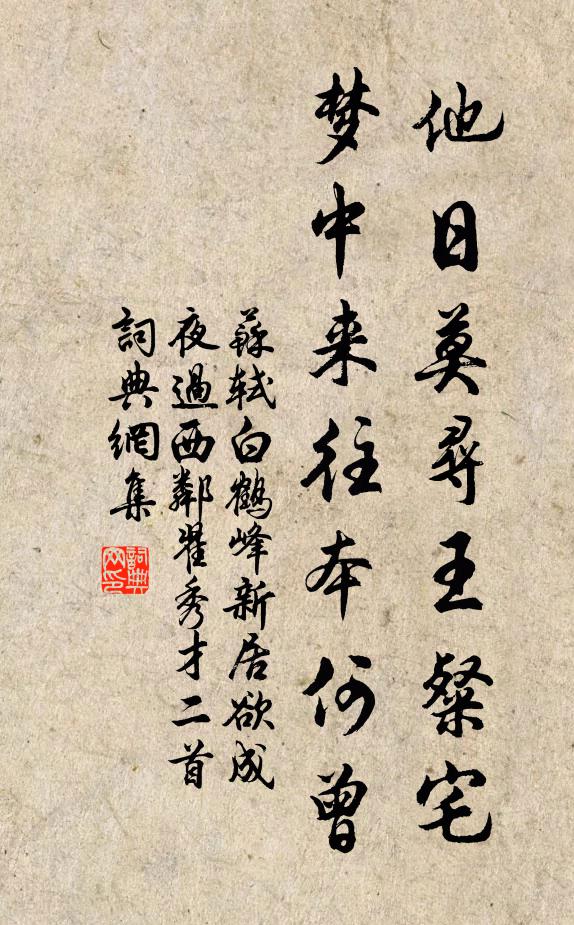 他日莫尋王粲宅
梦中来往本何曾
蘇軾白鶴峰新居欲成
夜過西鄰翟秀才二首
詞典網集
詞典网印